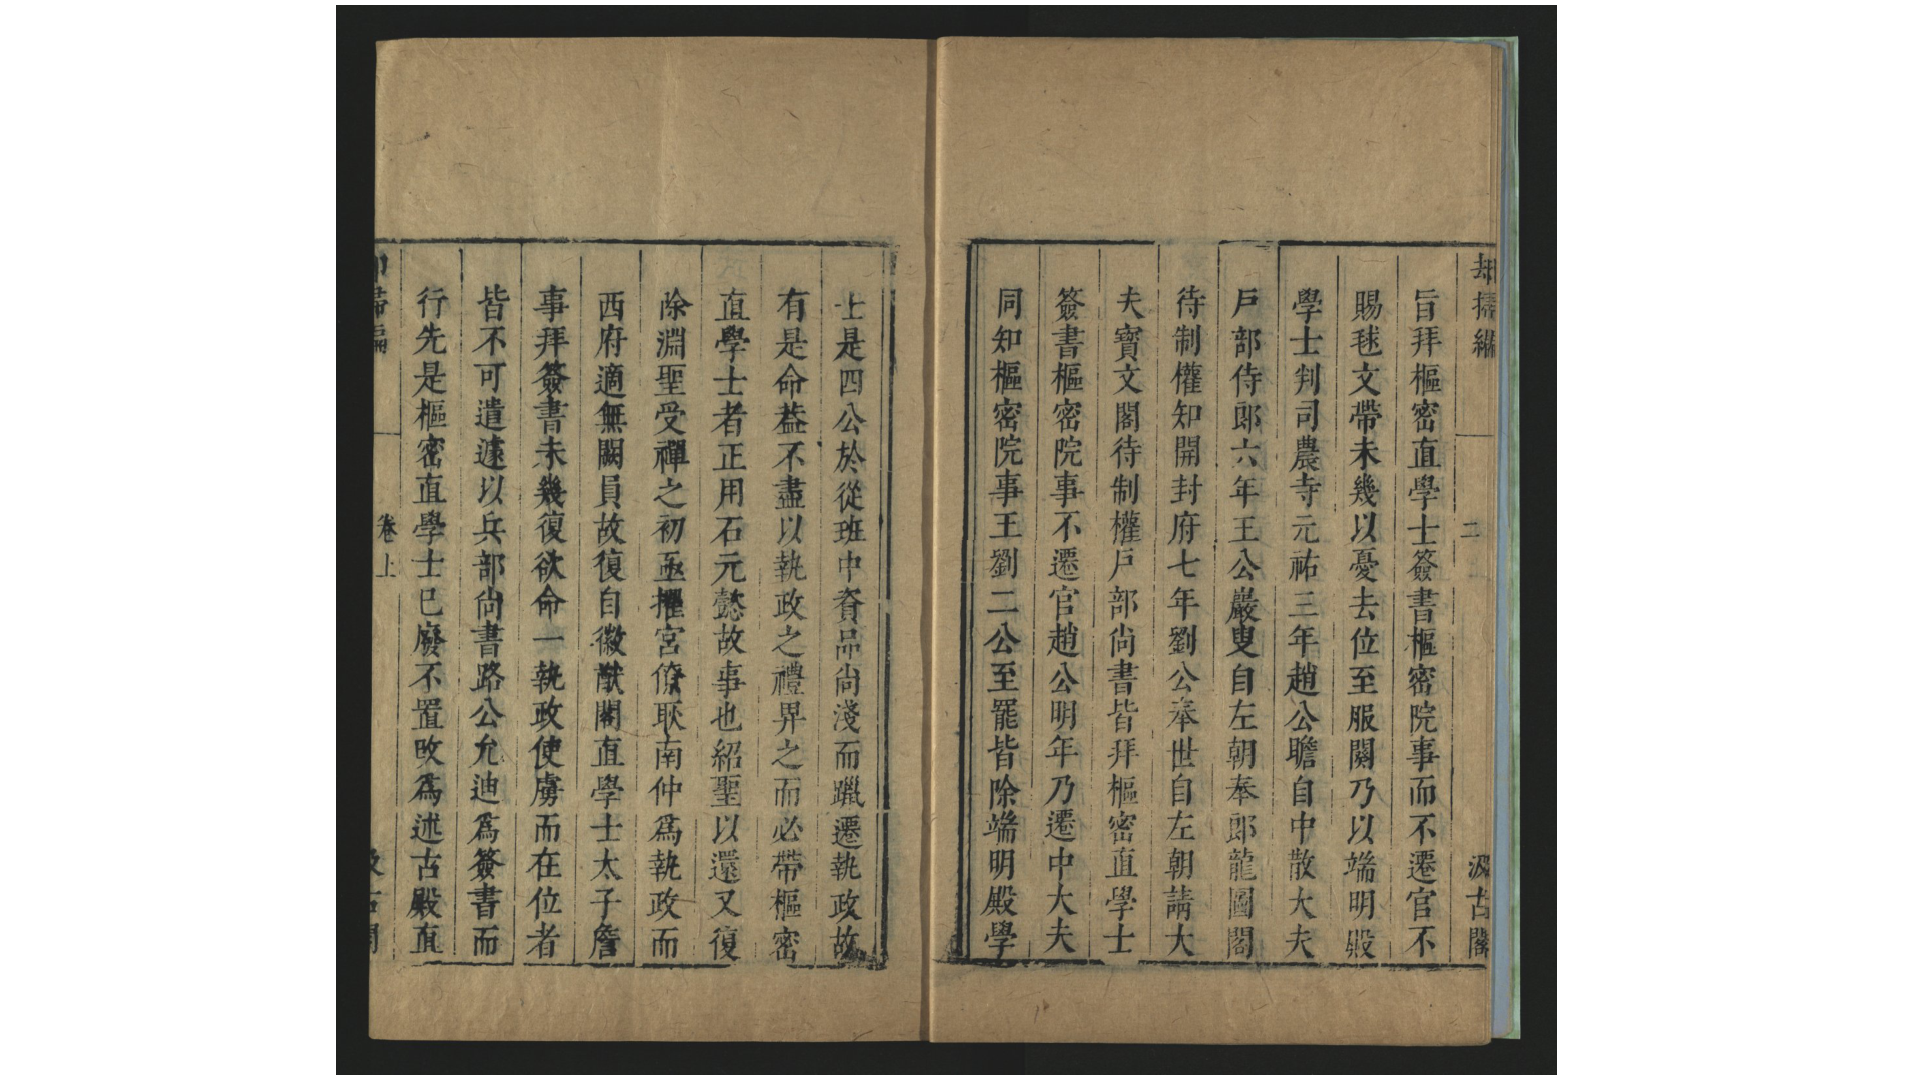 却掃編
二
汲古閣
旨拜樞密直學士簽書樞密院事而不遷官不
賜毬文帶未幾以憂去位至服闋乃以端明殿
學士判司農寺元祐三年趙公瞻自中散大夫
戸部侍郎六年王公巖叟自左朝奉郎龍圖閣
待制權知開封府七年劉公奉世自左朝請大
夫寶文閣待制權戸部尚書皆拜樞密直學士
簽書樞密院事不遷官趙公明年乃遷中大夫
同知樞密院事王劉二公至罷皆除端明殿學
士是四公於從班中資品尚淺而躐遷執政故
有是命葢不盡以執政之禮畀之而必帶樞密
直學士者正用石元懿故事也紹聖以還又復
除淵聖受禪之初亟擢宮僚耿南仲爲執政而
西府適無闕員故復自徽猷閣直學士太子詹
事拜簽書未幾復欲命一執政使虜而在位者
皆不可遣遽以兵部尚書路公允迪爲簽書而
行先是樞密直學士已廢不置改爲述古殿直
卷上